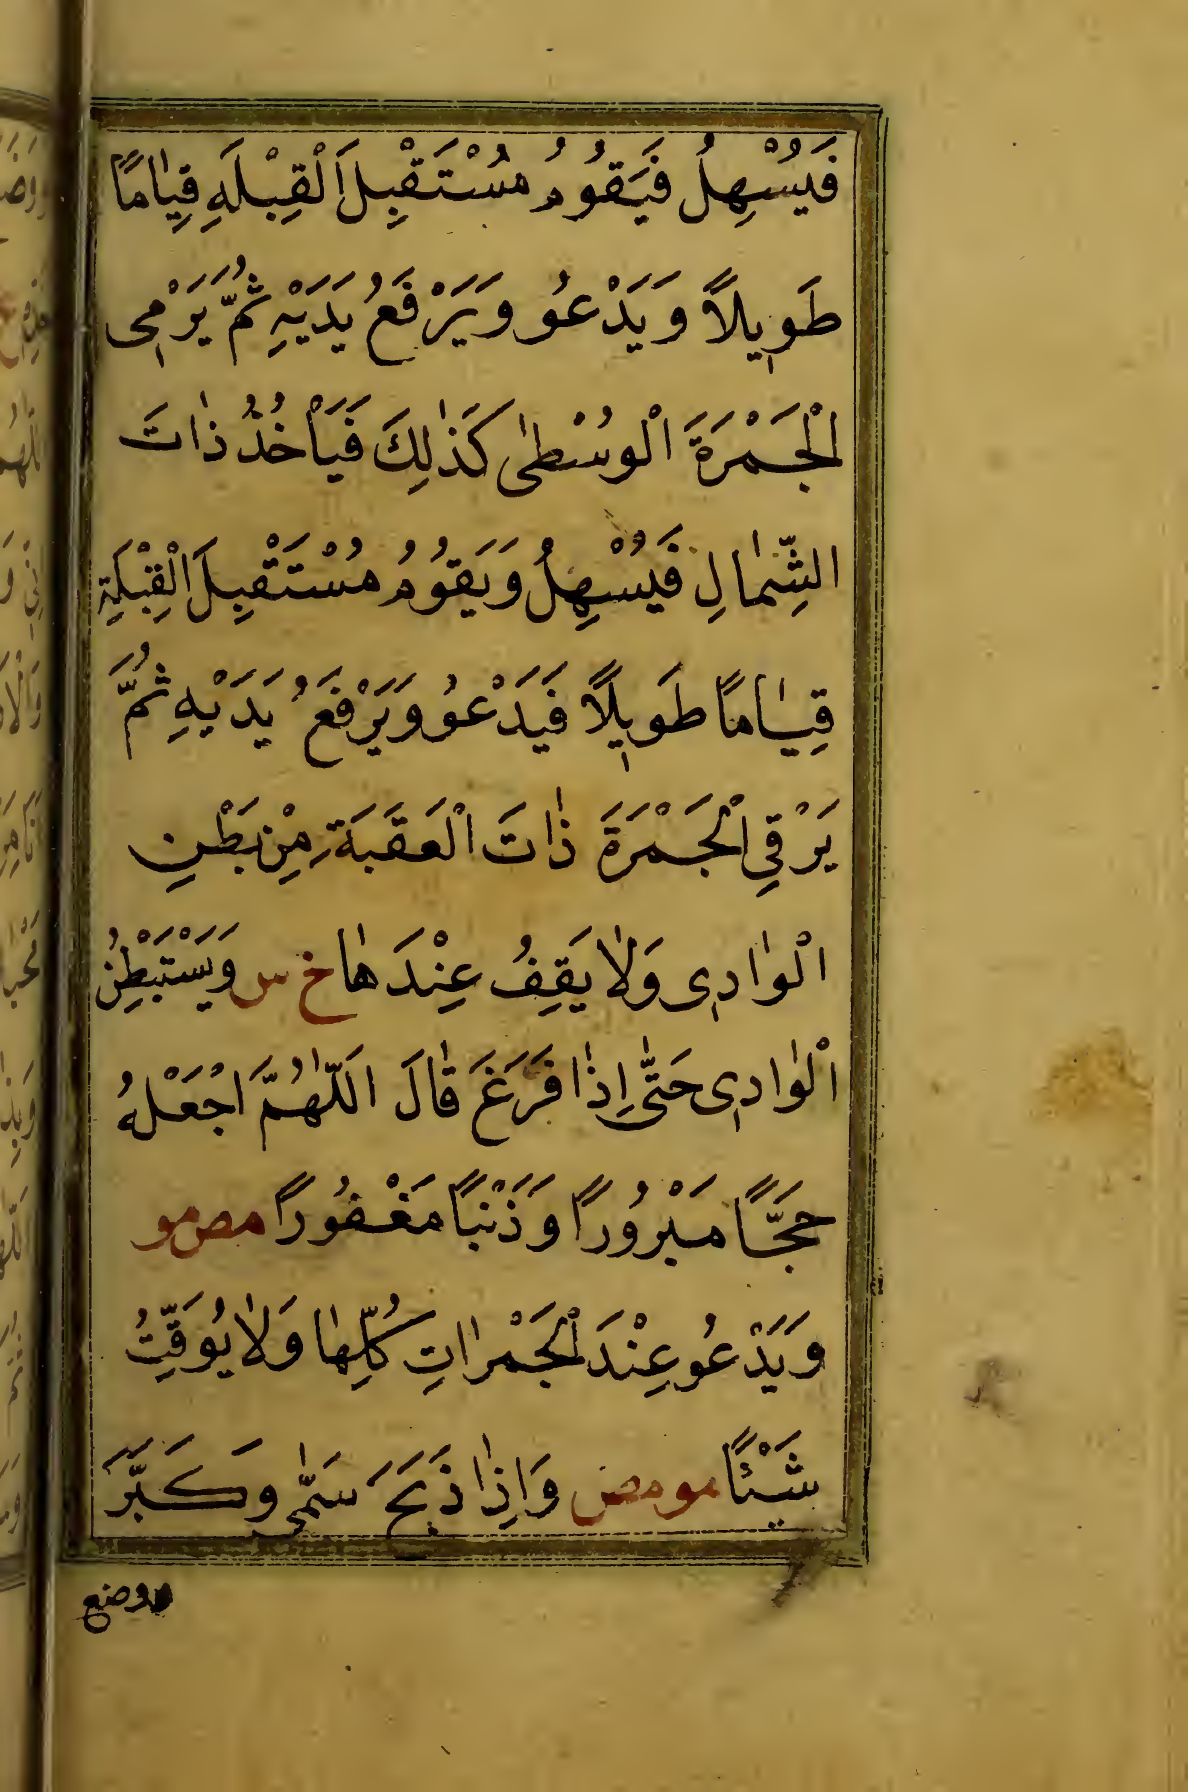 فَيُسْهِلُ فَيَقُومُ مُسْتَقْبِلَ الْقِبْلَةِ قِيَامًا
طَوِيلًا وَيَدْعُو وَيَرْفَعُ يَدَيْهِ ثُمَّ يَرْمِي
الْجَمْرَةَ الْوُسْطٰى كَذٰلِكَ فَيَأْخُذُ ذٰاتَ
الشِّمٰالِ فَيُسْهِلُ وَيَقُومُ مُسْتَقْبِلَ الْقِبْلَةِ
قِيٰامًا طَوِيلًا فَيَدْعُو وَيَرْفَعُ يَدَيْهِ ثُمَّ
يَرْقِي الْجَمْرَةَ ذٰاتَ الْعَقَبَةِ مِنْ بَطْنِ
الْوٰادِي وَلٰا يَقِفُ عِنْدَهٰا خ س وَيَسْتَبْطِنُ
الْوٰادِي حَتّٰى اِذٰا فَرَغَ قٰالَ اللّٰهُمَّ اجْعَلْهُ
حَجًّا مَبْرُورًا وَذَنْبًا مَغْفُورًا مص مو
وَيَدْعُو عِنْدَ الْجَمْرٰاتِ كُلِّهٰا وَلٰا يُوَقِّتُ
شَيْئًا مو مص وَاِذٰا ذَبَحَ سَمّٰى وَكَبَّرَ
ووضع